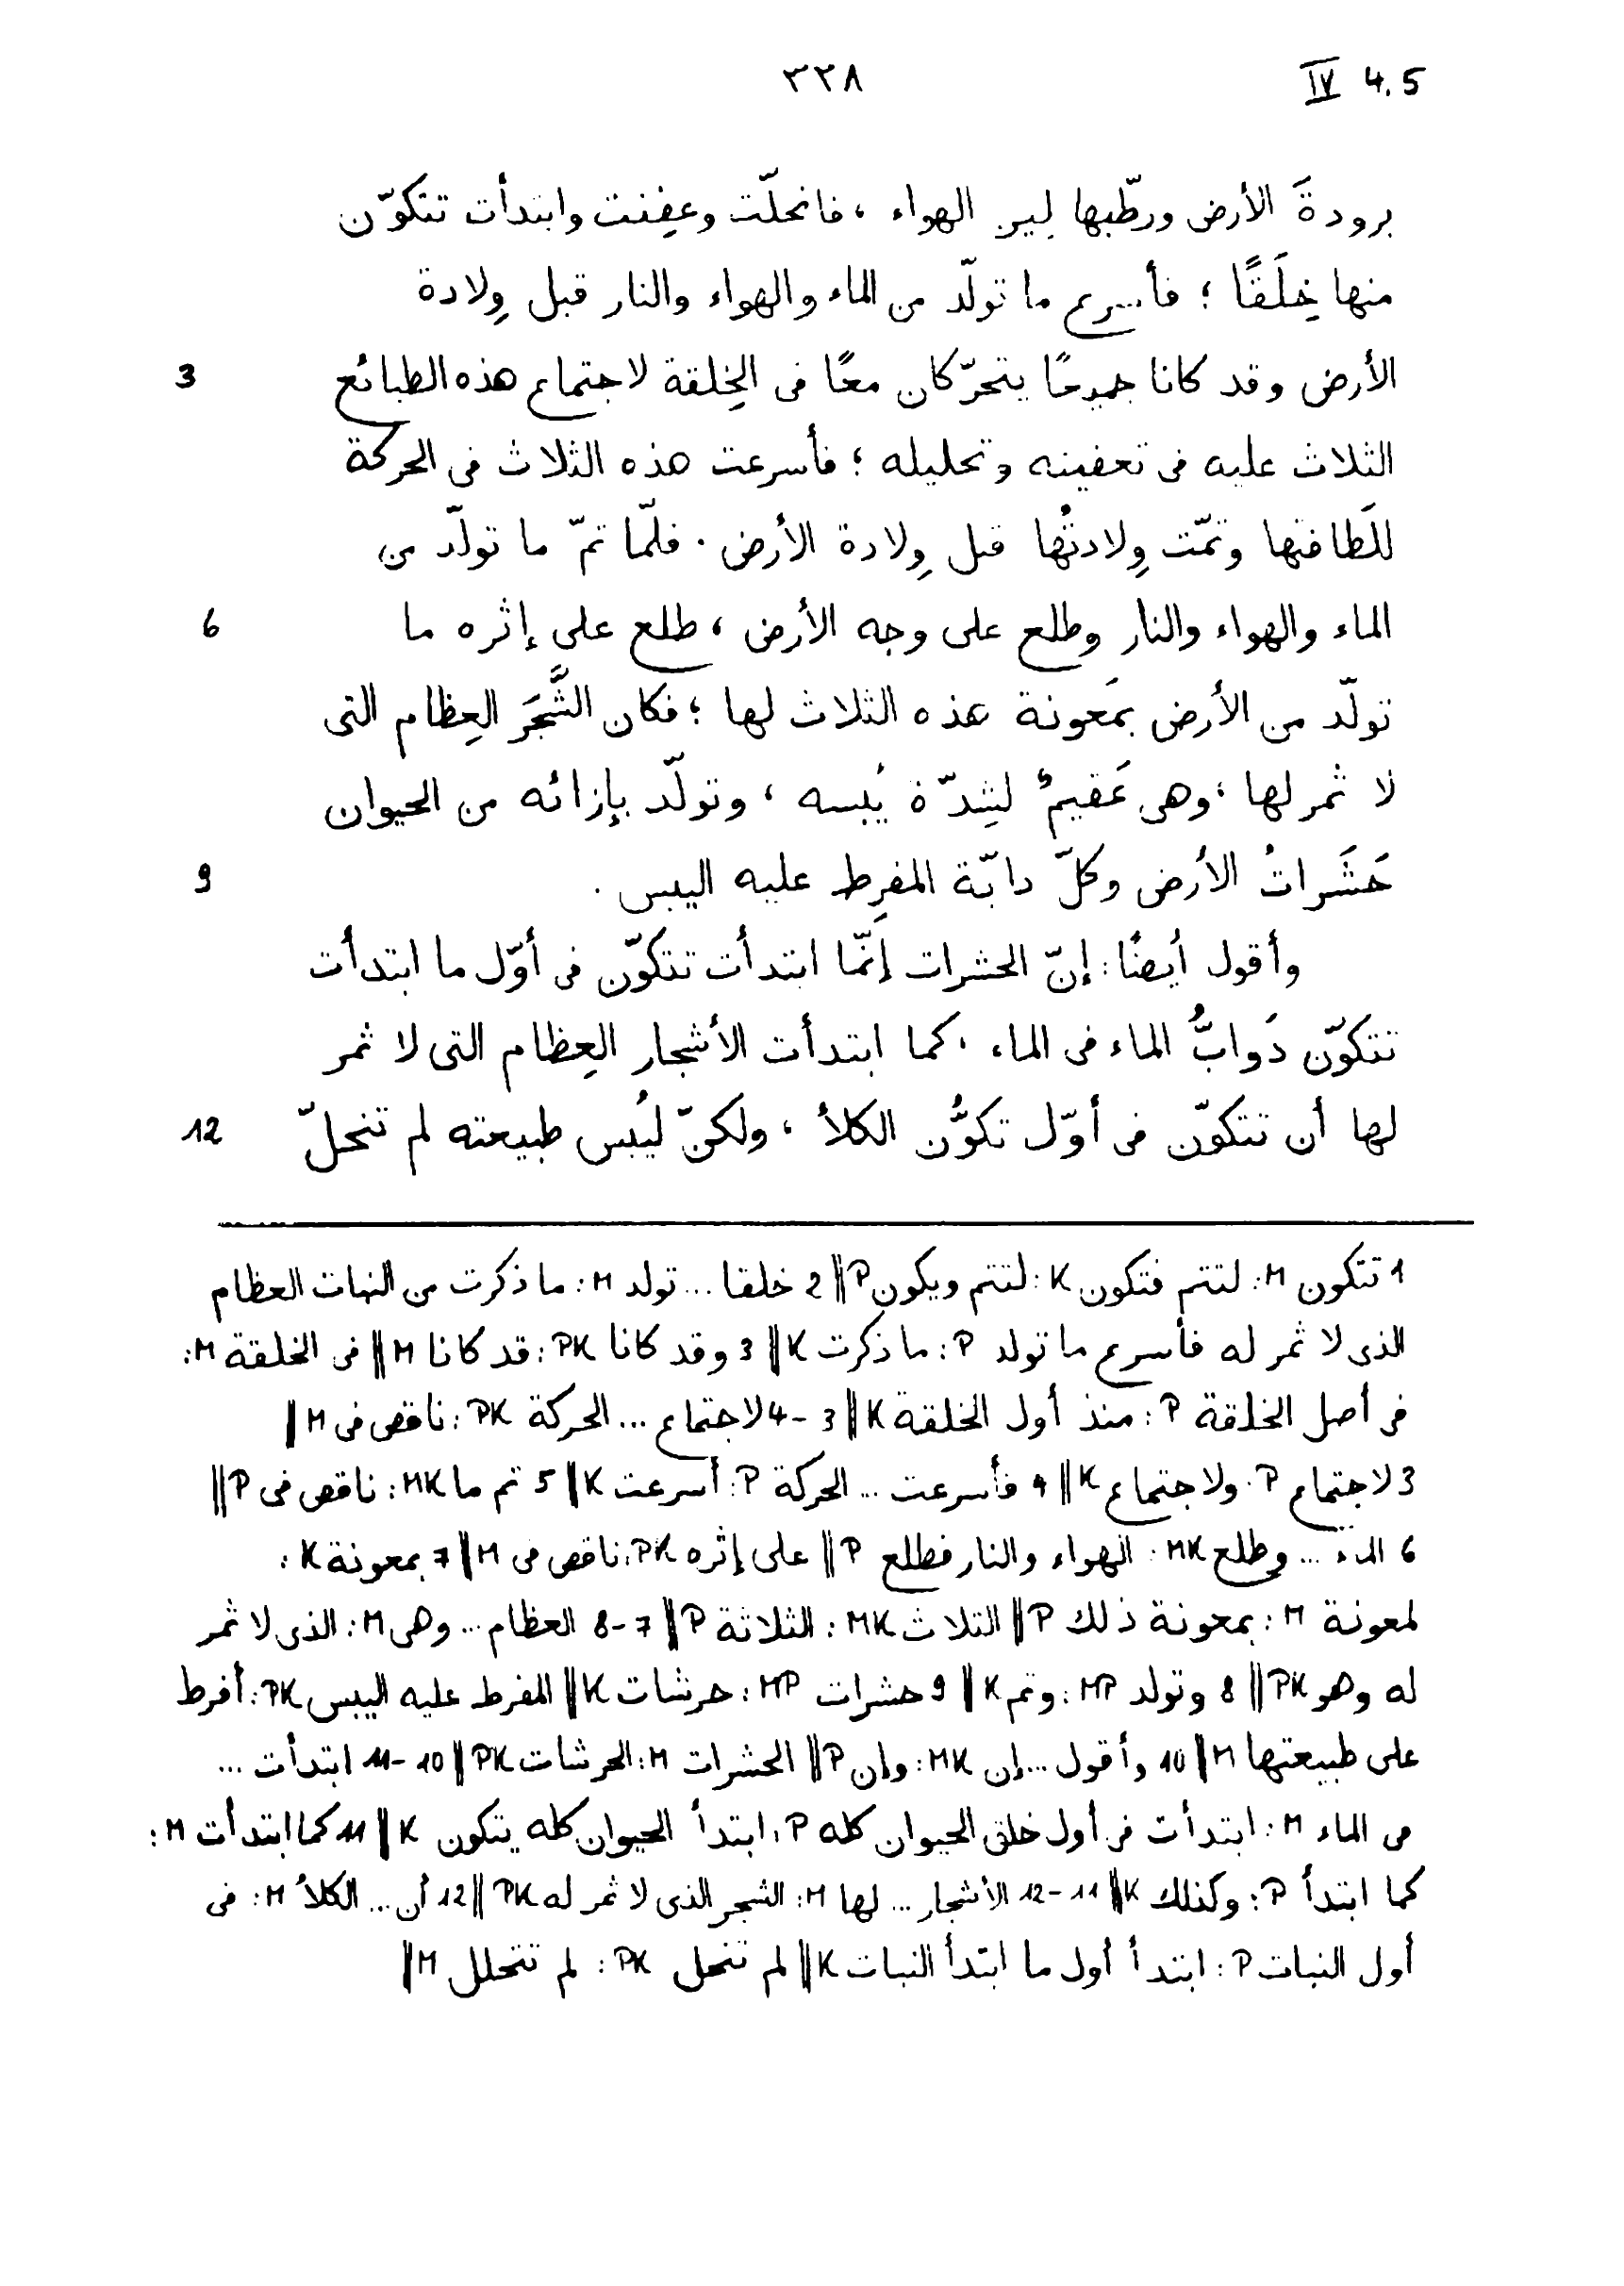 ٣٢٨ IV 4.5
برودةَ الأرض ورطّبها لِين الهواء ، فانحلّت وعفِنت وابتدأت تتكوّن
منها خِلَقًا ؛ فأسرع ما تولّد من الماء والهواء والنار قبل وِلادة
الأرض وقد كانا جميعًا يتحرّكان معًا فى الخِلقة لاجتماع هذه الطبائع 3
الثلاث عليه فى تعفينه وتحليله ؛ فأسرعت هذه الثلاث فى الحركة
للَطافتها وتمّت وِلادتُها قبل وِلادة الأرض . فلمّا تمّ ما تولّد من
الماء والهواء والنار وطلع على وجه الأرض ، طلع على إثره ما 6
تولّد من الأرض بمَعونة هذه الثلاث لها ؛ فكان الشَّجَر العِظام التى
لا ثمر لها ، وهى عَقيمٌ لشِدّة يُبسه ، وتولّد بإزائه من الحيوان
حَشَراتُ الأرض وكلّ دابّة المفرِط عليه اليبس . 9
وأقول أيضًا : إنّ الحشرات إنّما ابتدأت تتكوّن فى أوّل ما ابتدأت
تتكوّن دَوابُّ الماء فى الماء ، كما ابتدأت الأشجار العِظام التى لا ثمر
لها أن تتكوّن فى أوّل تكوُّن الكلأ ، ولكنّ ليُبس طبيعته لم تنحلّ 12
1 تتكون M : لتتم فتكون K : لتتم ويكون P || 2 خلقا ... تولد M : ما ذكرت من النبات العظام
الذى لا ثمر له فأسرع ما تولد P : ما ذكرت K || 3 وقد كانا PK : قد كانا M || فى الخلقة M :
فى أصل الخلقة P : منذ أول الخلقة K || 3-4 لاجتماع ... الحركة PK : ناقص فى M ||
3 لاجتماع P : ولاجتماع K || 4 فأسرعت ... الحركة P : أسرعت K || 5 تم ما MK : ناقص فى P ||
6 الماء ... وطلع MK : الهواء والنار فطلع P || على إثره PK : ناقص فى M || 7 بمعونة K :
لمعونة M : بمعونة ذلك P || الثلاث MK : الثلاثة P || 7-8 العظام ... وهى M : الذى لا ثمر
له وهو PK || 8 وتولد MP : وتم K || 9 حشرات MP : حرشات K || المفرط عليه اليبس PK : أفرط
على طبيعتها M || 10 وأقول ... إن MK : وإن P || الحشرات M : الحرشات PK || 10-11 ابتدأت ...
فى الماء M : ابتدأت فى أول خلق الحيوان كله P : ابتدأ الحيوان كله يتكون K || 11 كما ابتدأت M :
كما ابتدأ P : وكذلك K || 11-12 الأشجار ... لها M : الشجر الذى لا ثمر له PK || 12 أن ... الكلأ M : فى
أول النبات P : ابتدأ أول ما ابتدأ النبات K || لم تنحل PK : لم تتحلل M ||